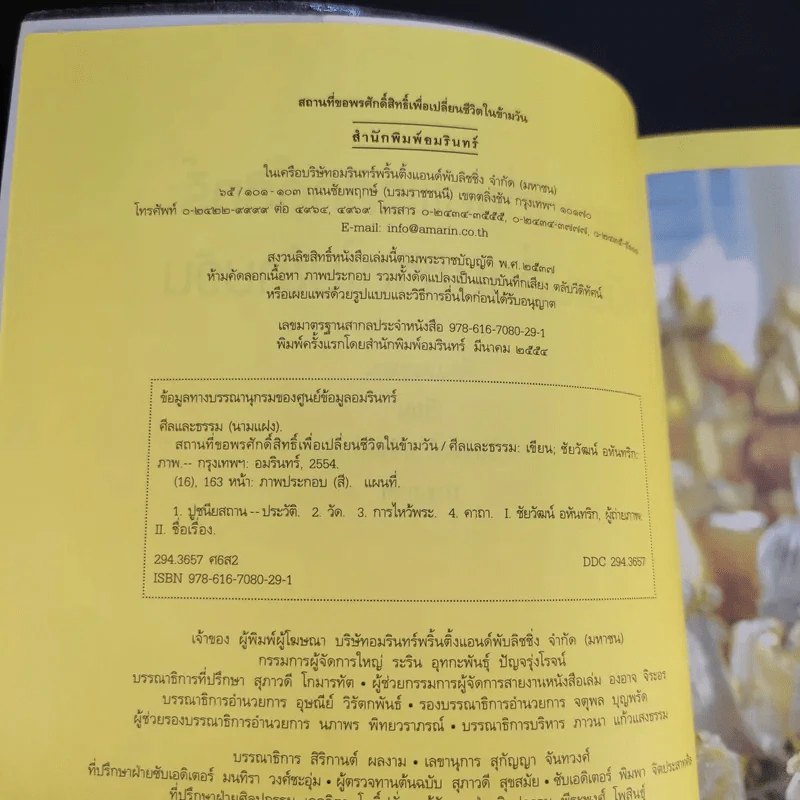 สถานที่ขอพรศักดิ์สิทธิ์เพื่อเปลี่ยนชีวิตในข้ามวัน
สำนักพิมพ์อมรินทร์
ในเครือบริษัทอมรินทร์พริ้นติ้งแอนด์พับลิชชิ่ง จำกัด (มหาชน)
๖๕/๑๐๑-๑๐๓ ถนนชัยพฤกษ์ (บรมราชชนนี) เขตตลิ่งชัน กรุงเทพฯ ๑๐๑๗๐
โทรศัพท์ ๐-๒๔๒๒-๙๙๙๙ ต่อ ๔๙๖๔, ๔๙๖๙ โทรสาร ๐-๒๔๓๔-๓๕๕๕, ๐-๒๔๓๔-๓๗๗๗,
E-mail: info@amarin.co.th
สงวนลิขสิทธิ์หนังสือเล่มนี้ตามพระราชบัญญัติ พ.ศ. ๒๕๓๗
ห้ามคัดลอกเนื้อหา ภาพประกอบ รวมทั้งดัดแปลงเป็นแถบบันทึกเสียง ตลับวีดิทัศน์
หรือเผยแพร่ด้วยรูปแบบและวิธีการอื่นใดก่อนได้รับอนุญาต
เลขมาตรฐานสากลประจำหนังสือ 978-616-7080-29-1
พิมพ์ครั้งแรกโดยสำนักพิมพ์อมรินทร์ มีนาคม ๒๕๕๔
ข้อมูลทางบรรณานุกรมของศูนย์ข้อมูลอมรินทร์
ศีลและธรรม (นามแฝง).
สถานที่ขอพรศักดิ์สิทธิ์เพื่อเปลี่ยนชีวิตในข้ามวัน / ศีลและธรรม: เขียน; ชัยวัฒน์ อหันทริก:
ภาพ.-- กรุงเทพฯ: อมรินทร์, 2554.
(16), 163 หน้า: ภาพประกอบ (สี). แผนที่.
1. ปูชนียสถาน--ประวัติ. 2. วัด. 3. การไหว้พระ. 4. คาถา. I. ชัยวัฒน์ อหันทริก, ผู้ถ่ายภาพ.
II. ชื่อเรื่อง.
294.3657 ศ6ส2 DDC 294.3657
ISBN 978-616-7080-29-1
เจ้าของ ผู้พิมพ์ผู้โฆษณา บริษัทอมรินทร์พริ้นติ้งแอนด์พับลิชชิ่ง จำกัด (มหาชน)
กรรมการผู้จัดการใหญ่ ระริน อุทกะพันธุ์ ปัญจรุ่งโรจน์
บรรณาธิการที่ปรึกษา สุภาวดี โกมารทัต • ผู้ช่วยกรรมการผู้จัดการสายงานหนังสือเล่ม องอาจ จิระอร
บรรณาธิการอำนวยการ อุษณีย์ วิรัตกพันธ์ • รองบรรณาธิการอำนวยการ จตุพล บุญพรัด
ผู้ช่วยรองบรรณาธิการอำนวยการ นภาพร พิทยวราภรณ์ • บรรณาธิการบริหาร ภาวนา แก้วแสงธรรม
บรรณาธิการ สิริกานต์ ผลงาม • เลขานุการ สุกัญญา จันทวงศ์
ที่ปรึกษาฝ่ายซับเอดิเตอร์ มนทิรา วงศ์ชะอุ่ม • ผู้ตรวจทานต้นฉบับ สุภาวดี สุขสมัย • ซับเอดิเตอร์ พิมพา
ที่ปรึกษาฝ่ายศิลปกรรม